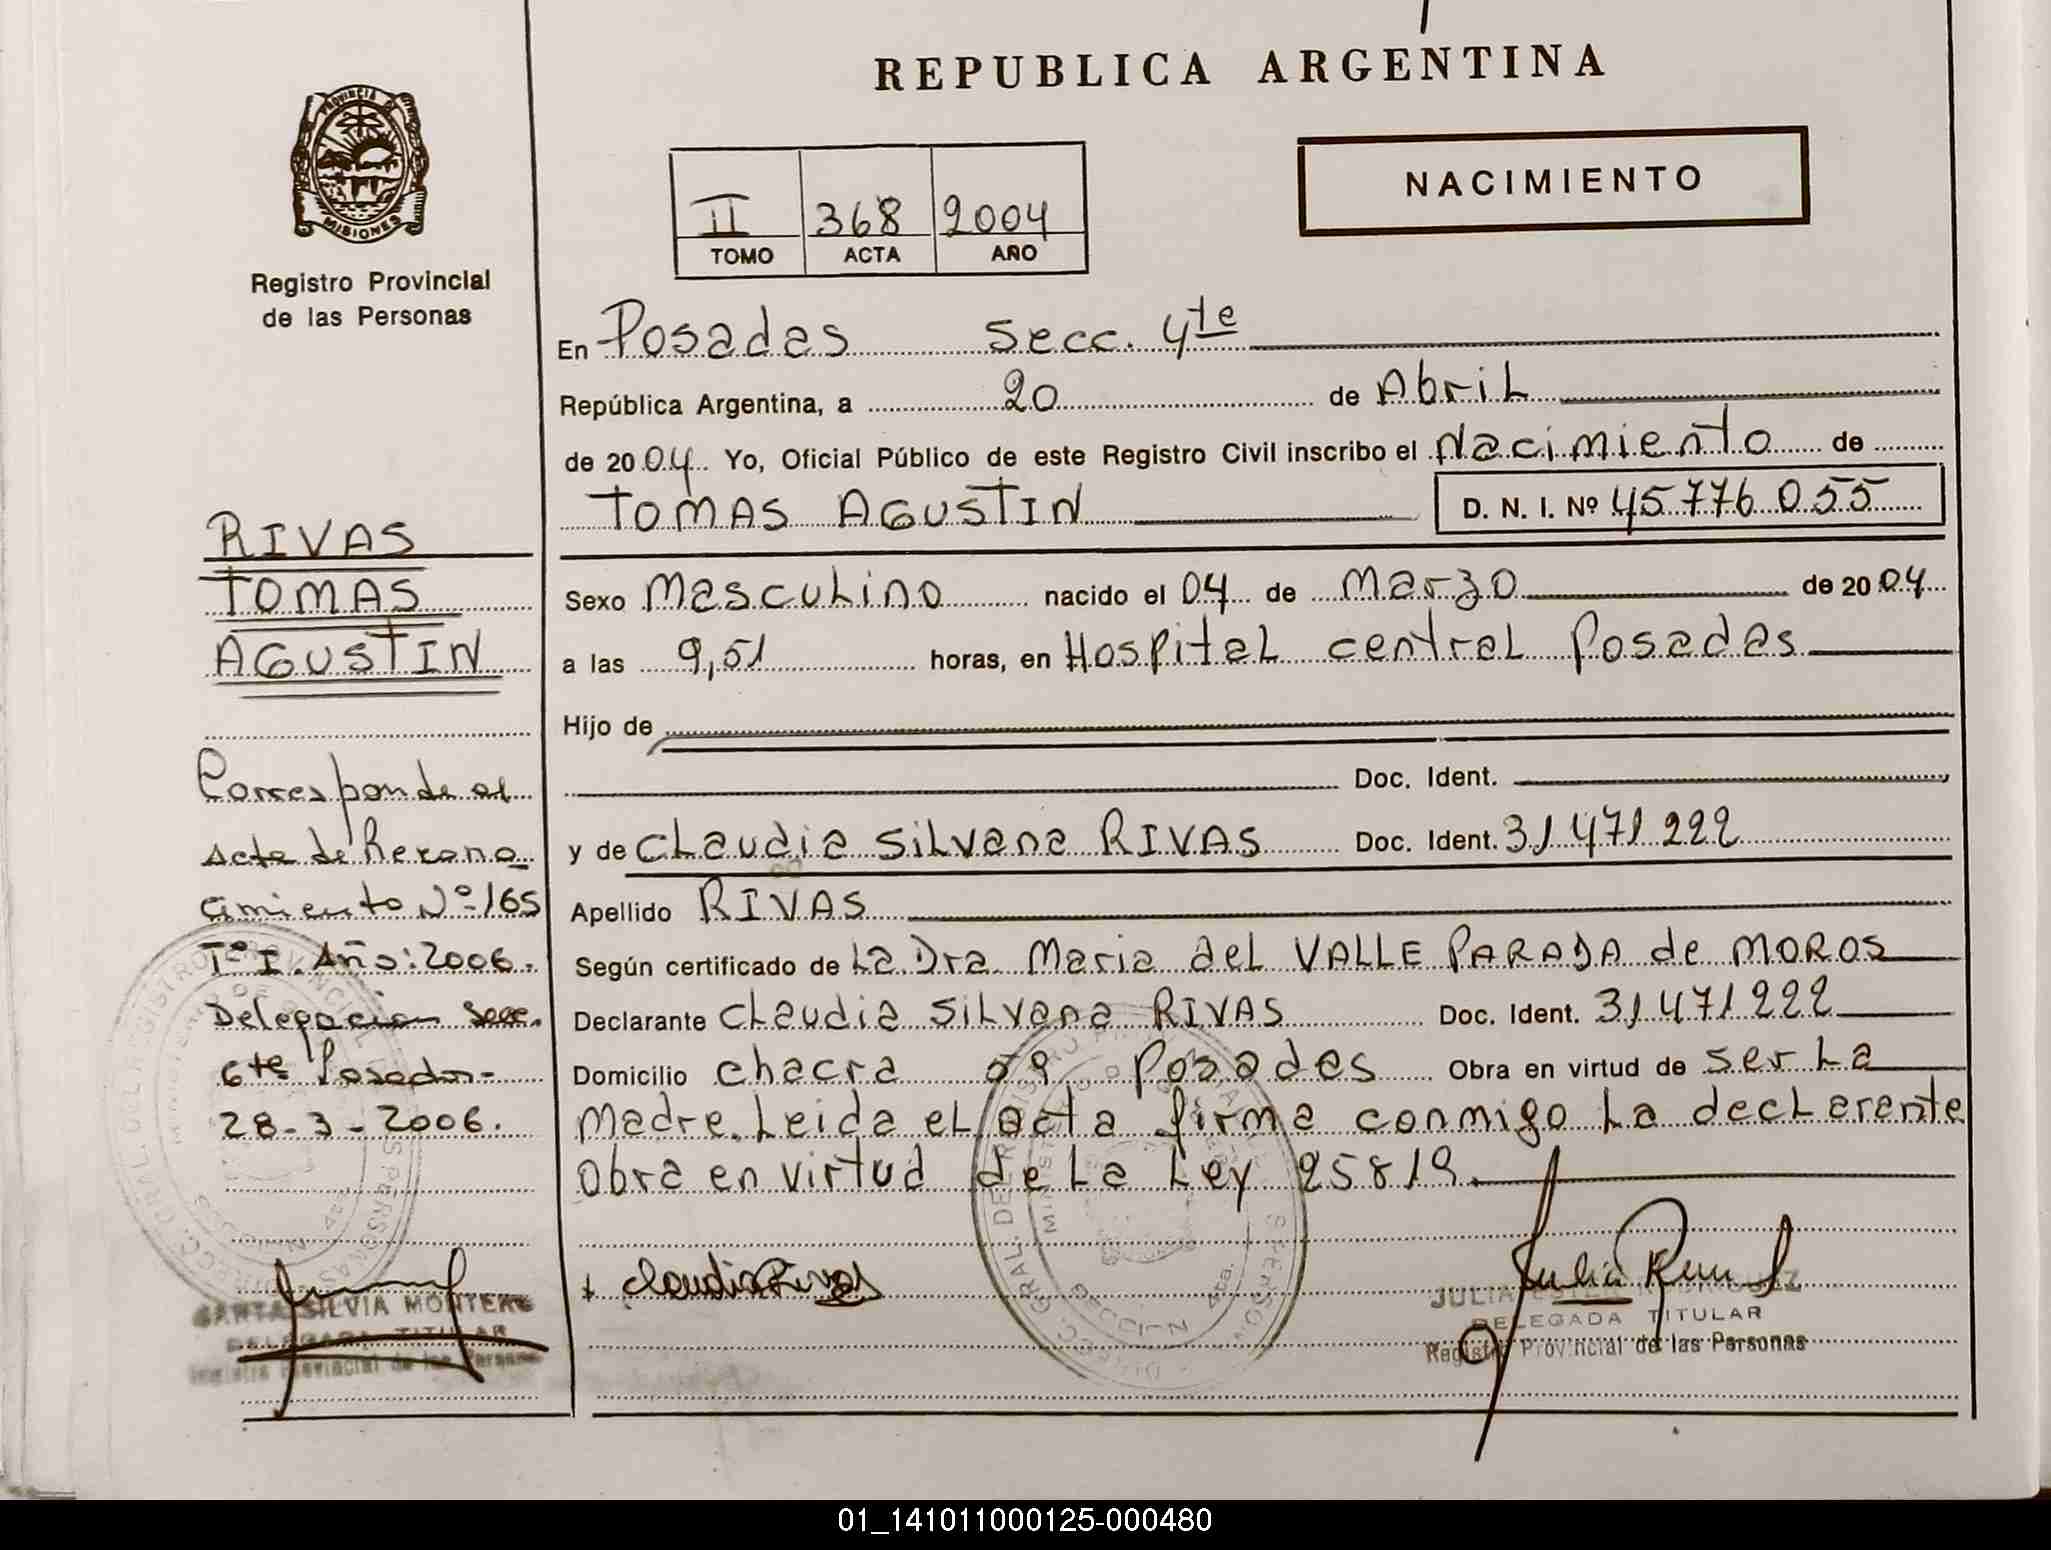 REPUBLICA ARGENTINA
PROVINCIA DE
MISIONES
Registro Provincial
de las Personas
NACIMIENTO
II 368 2004
TOMO ACTA AÑO
En Posadas Secc. 4te
República Argentina, a 20 de Abril
de 2004 Yo, Oficial Público de este Registro Civil inscribo el Nacimiento de
TOMAS AGUSTIN D. N. I. Nº 45.776.055
Sexo Masculino nacido el 04 de Marzo de 2004
a las 9,51 horas, en Hospital central Posadas
Hijo de
Doc. Ident.
y de Claudia Silvana RIVAS Doc. Ident. 31.471.222
Apellido RIVAS
Según certificado de La Dra. Maria del VALLE PARADA de MOROS
Declarante Claudia Silvana RIVAS Doc. Ident. 31.471.222
Domicilio chacra Posadas Obra en virtud de ser La
Madre. Leida el acta firma conmigo La declarante
Obra en virtud de La Ley 25819.
Claudia Rivas
JULIA ESTER RODRIGUEZ
DELEGADA TITULAR
Registro Provincial de las Personas
RIVAS
TOMAS
AGUSTIN
Corresponde al
Acta de Recono
cimiento Nº 165
Tº I. Año: 2006.
Delegación Secc.
6te Posadas-
28-3-2006.
SILVIA
DELEGADA TITULAR
Registro Provincial de las Personas
01_141011000125-000480